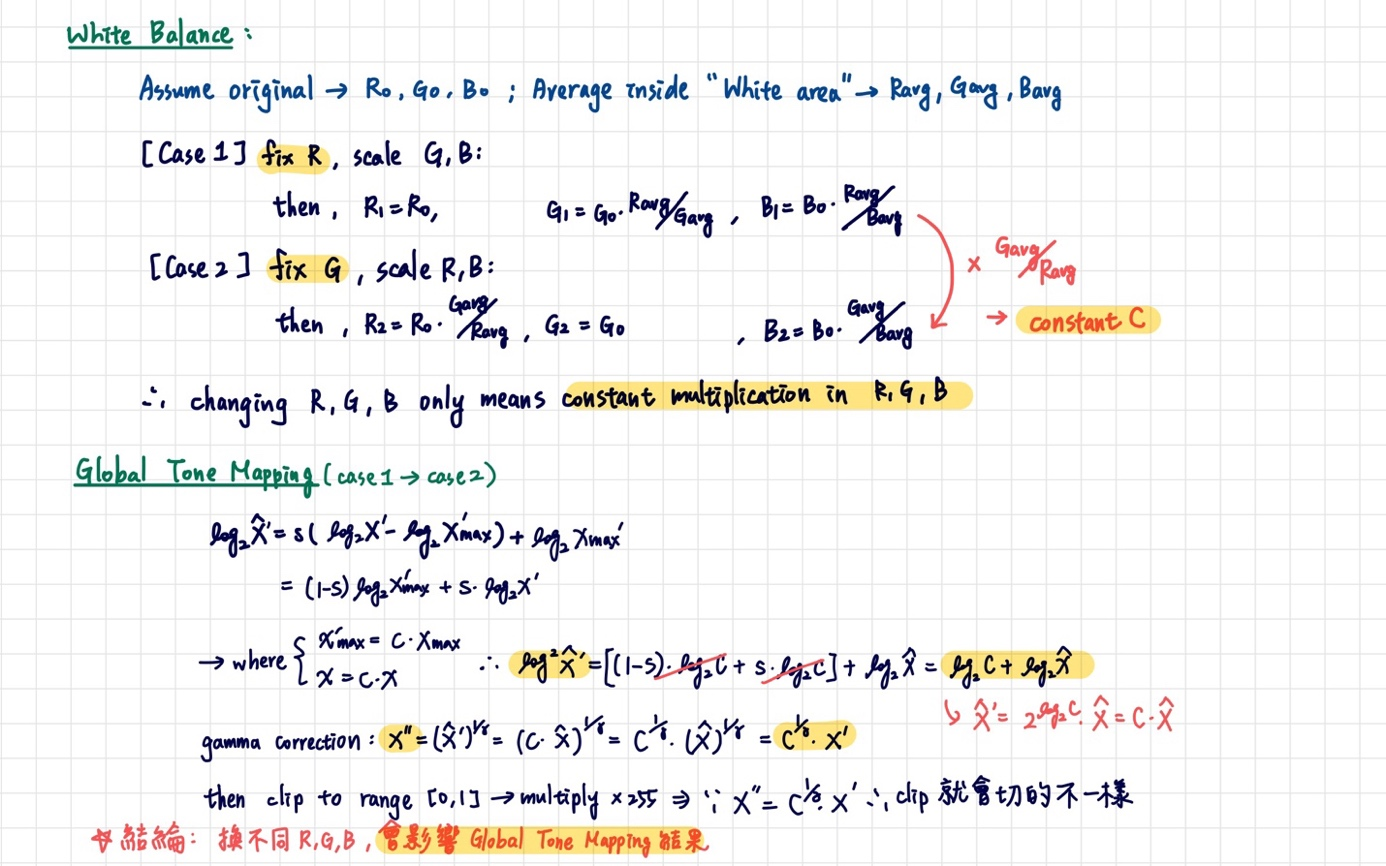 White Balance :
Assume original → R₀, G₀, B₀ ; Average inside "White area" → Ravg, Gavg, Bavg
[Case 1] fix R, scale G, B:
then, R₁ = R₀, G₁ = G₀ · Ravg/Gavg , B₁ = B₀ · Ravg/Bavg
× Gavg/Ravg
[Case 2] fix G, scale R, B:
then, R₂ = R₀ · Gavg/Ravg , G₂ = G₀ , B₂ = B₀ · Gavg/Bavg
→ constant C
∴ changing R, G, B only means constant multiplication in R, G, B
Global Tone Mapping (case 1 → case 2)
log₂X̂' = s( log₂X' - log₂X'max) + log₂Xmax'
= (1-s) log₂X'max + s · log₂X'
→ where { X'max = C · Xmax
X = C · X
∴ log²X̂' = [(1-s) · log₂C + s · log₂C] + log₂X̂ = log₂C + log₂X̂
↳ X̂' = 2^log₂C · X̂ = C · X̂
gamma correction : X'' = (X̂')^1/γ = (C · X̂)^1/γ = C^1/γ · (X̂)^1/γ = C^1/γ · X'
then clip to range [0,1] → multiply ×255 ⇒ ∵ X'' = C^1/γ · X' ∴ clip 就會切的不一樣
☆ 結論: 換不同 R,G,B , 會影響 Global Tone Mapping 結果